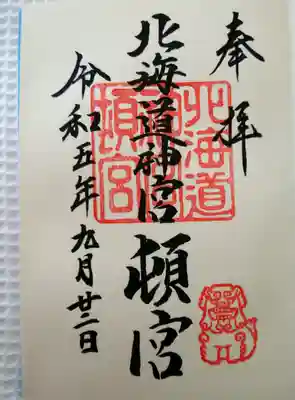 奉拝
北海道神宮頓宮
令和五年九月廿二日
北海道神宮頓宮